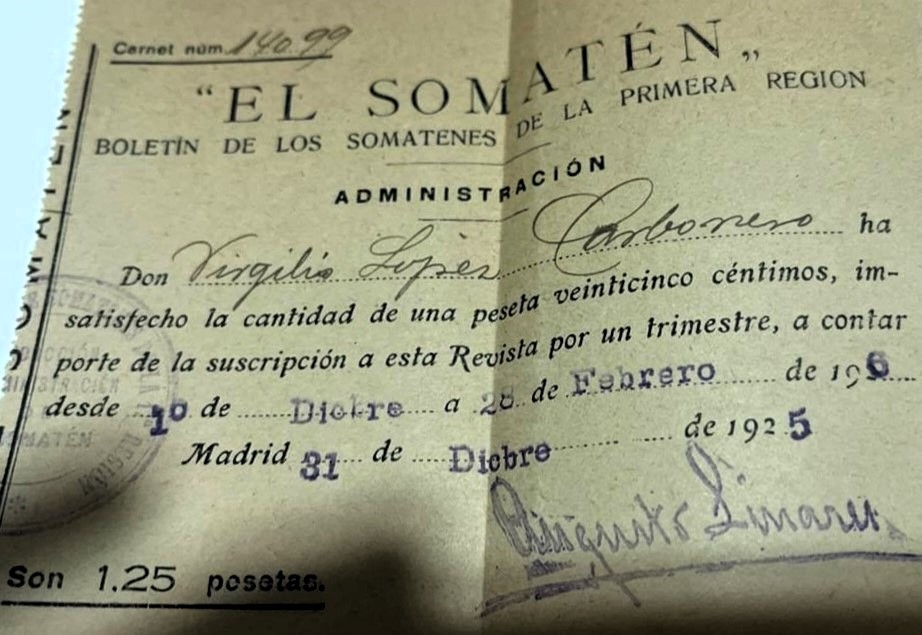 Carnet núm. 14099
"EL SOMATÉN„
BOLETÍN DE LOS SOMATENES DE LA PRIMERA REGION
ADMINISTRACIÓN
Don Virgilio Lopez Carbonero ha
satisfecho la cantidad de una peseta veinticinco céntimos, im-
porte de la suscripción a esta Revista por un trimestre, a contar
desde 1º de Dicbre a 28 de Febrero de 196
Madrid 31 de Dicbre de 1925
Augusto Linares
Son 1,25 pesetas.